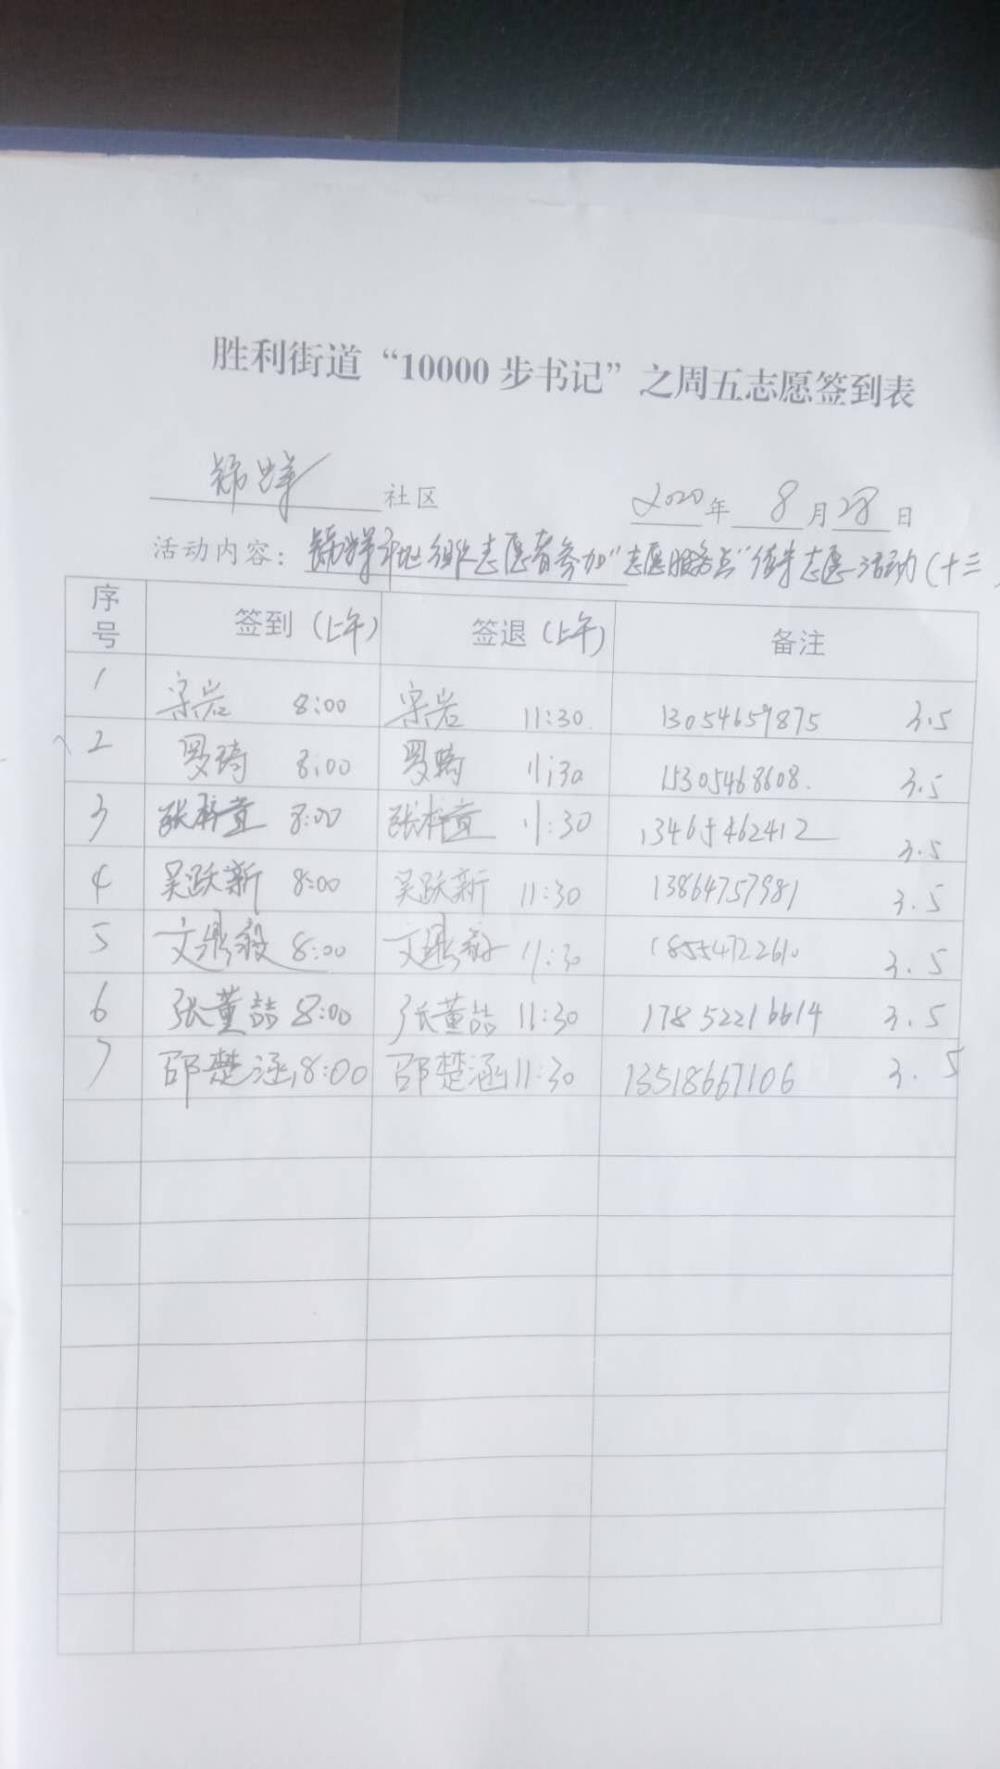 胜利街道“10000步书记”之周五志愿签到表
社区 2020年 8月28日
活动内容： 组织志愿者参加“志愿服务点”值守志愿活动（十三
序号 签到（上午） 签退（上午） 备注
1 宗岩 8:00 宗岩 11:30 13054659875 3.5
2 罗琦 8:00 罗琦 11:30 15305468608. 3.5
3 张梓萱 8:00 张梓萱 11:30 13465462412 3.5
4 吴跃新 8:00 吴跃新 11:30 13864757981 3.5
5 文鼎毅 8:00 文鼎毅 11:30 18554722610 3.5
6 张董喆 8:00 张董喆 11:30 17852216614 3.5
7 邵楚涵 8:00 邵楚涵 11:30 13518667106 3.5